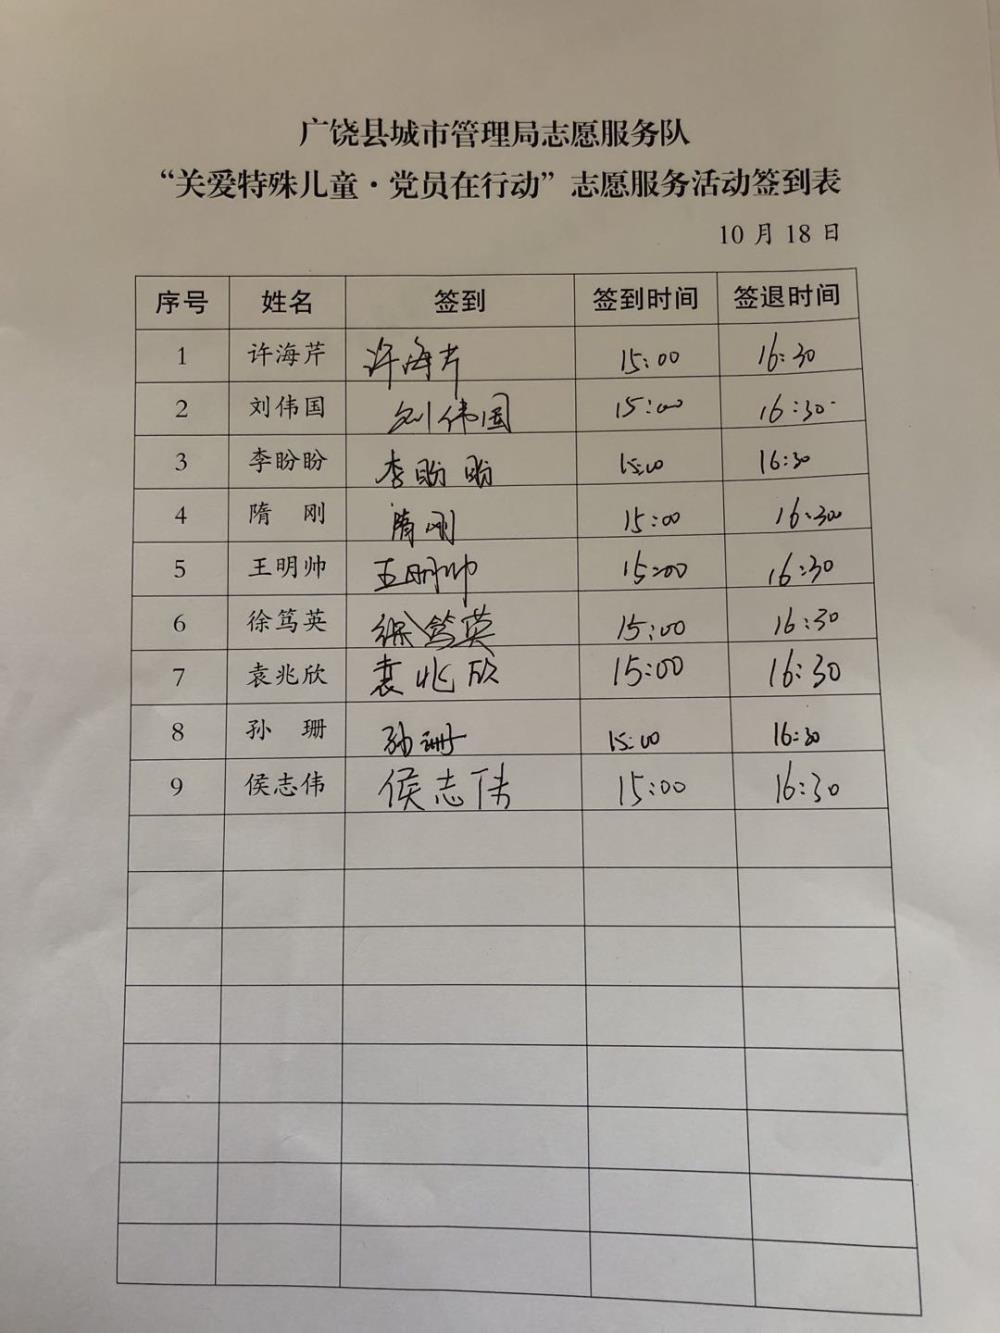 广饶县城市管理局志愿服务队
“关爱特殊儿童·党员在行动”志愿服务活动签到表
10 月 18 日
序号 姓名 签到 签到时间 签退时间
1 许海芹 许海芹 15:00 16:30
2 刘伟国 刘伟国 15:00 16:30
3 李盼盼 李盼盼 15:00 16:30
4 隋 刚 隋刚 15:00 16:30
5 王明帅 王明帅 15:00 16:30
6 徐笃英 徐笃英 15:00 16:30
7 袁兆欣 袁兆欣 15:00 16:30
8 孙 珊 孙珊 15:00 16:30
9 侯志伟 侯志伟 15:00 16:30